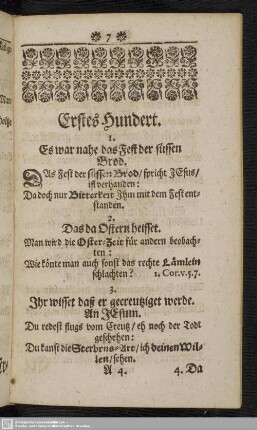 * 7 *
Erstes Hundert.
1.
Es war nahe das Fest der süssen
Brod.
DAs Fest der süssen Brod/ spricht JEsus/
ist verhanden:
Da doch nur Bitterkeit Jhm mit dem Fest ent-
standen.
2.
Das da Ostern heisset.
Man wird die Oster-Zeit für andern beobach-
ten:
Wie könte man auch sonst das rechte Lämlein
schlachten? 1. Cor. v. 5.7.
3.
Jhr wisset daß er gecreutziget werde.
An JEsum.
Du redest flugs vom Creutz/ eh noch der Todt
geschehen:
Du kanst die Sterbens-Art/ ich deinen Wil-
len/ sehen.
A 4. 4. Da